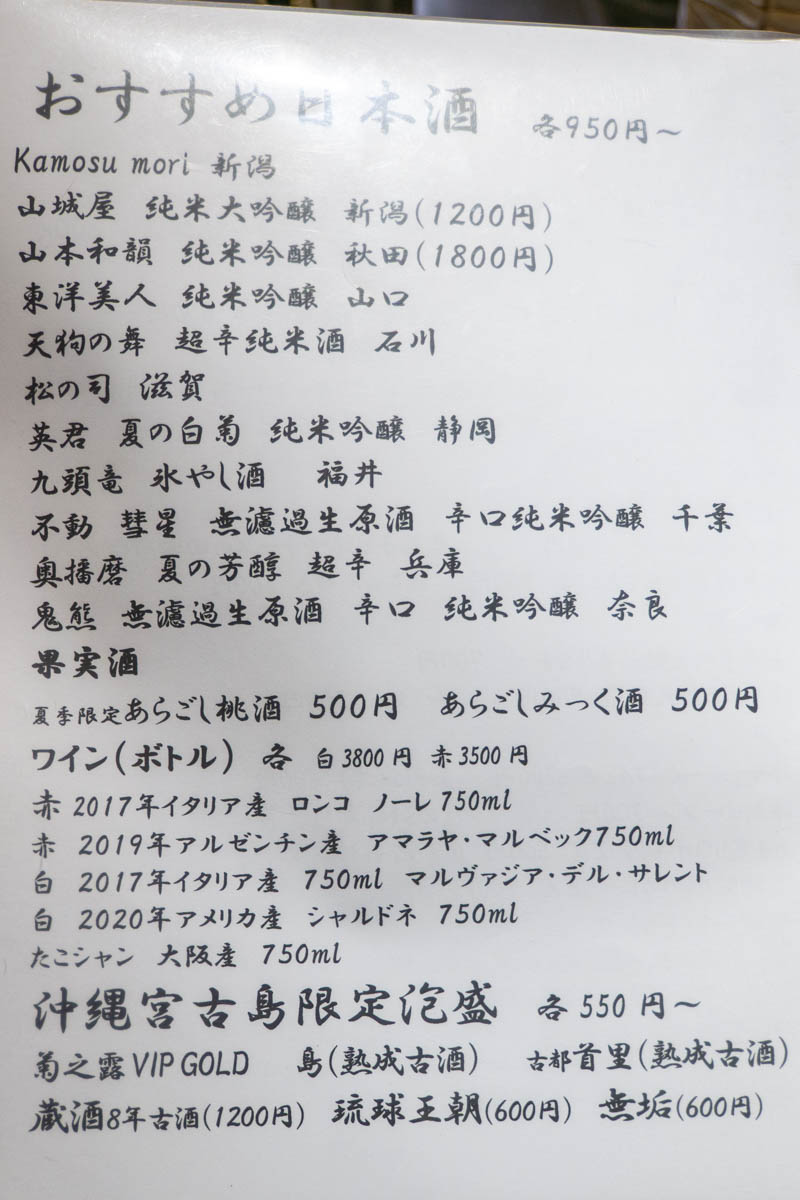 おすすめ日本酒 各950円～
Kamosu mori 新潟
山城屋 純米大吟醸 新潟(1200円)
山本和韻 純米吟醸 秋田(1800円)
東洋美人 純米吟醸 山口
天狗の舞 超辛純米酒 石川
松の司 滋賀
英君 夏の白菊 純米吟醸 静岡
九頭竜 氷やし酒 福井
不動 彗星 無濾過生原酒 辛口純米吟醸 千葉
奥播磨 夏の芳醇 超辛 兵庫
鬼熊 無濾過生原酒 辛口 純米吟醸 奈良
果実酒
夏季限定あらごし桃酒 500円 あらごしみっく酒 500円
ワイン(ボトル) 各 白3800円 赤3500円
赤 2017年イタリア産 ロンコ ノーレ750ml
赤 2019年アルゼンチン産 アマラヤ・マルベック750ml
白 2017年イタリア産 750ml マルヴァジア・デル・サレント
白 2020年アメリカ産 シャルドネ 750ml
たこシャン 大阪産 750ml
沖縄宮古島限定泡盛 各550円～
菊之露VIP GOLD 島(熟成古酒) 古都首里(熟成古酒)
蔵酒8年古酒(1200円) 琉球王朝(600円) 無垢(600円)